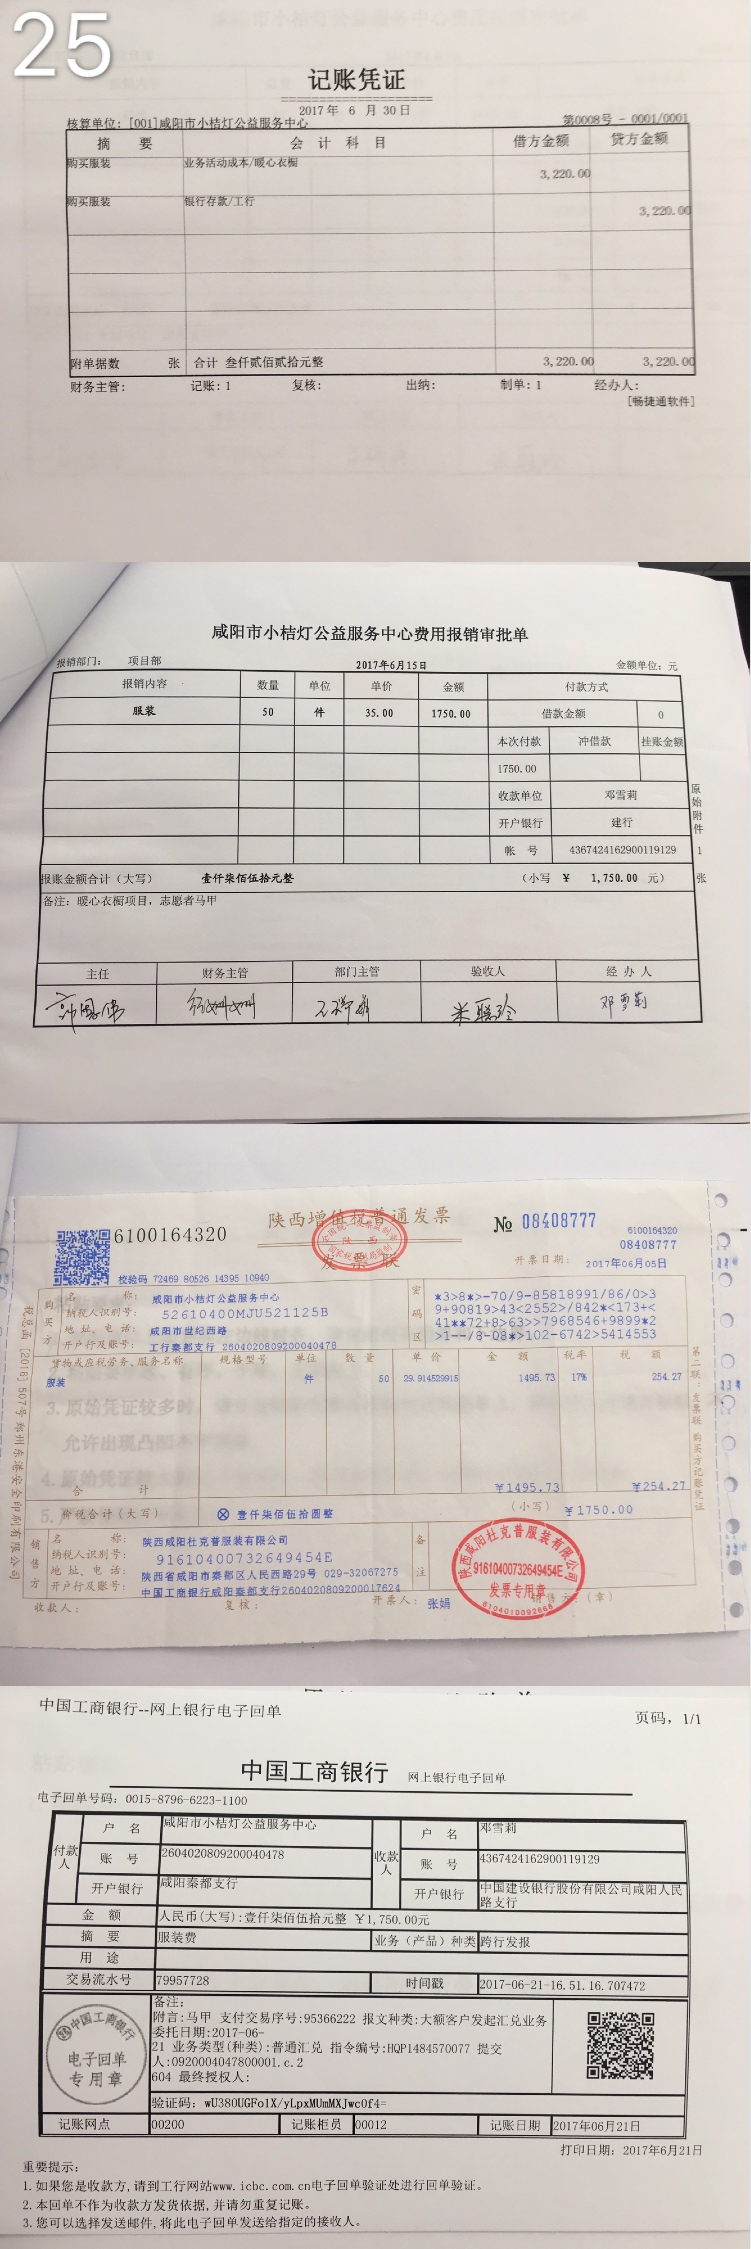 25
记账凭证
2017年 6 月 30日
核算单位: [001]咸阳市小桔灯公益服务中心 第0008号 - 0001/0001
摘 要 会 计 科 目 借方金额 贷方金额
购买服装 业务活动成本/暖心衣橱 3,220.00
购买服装 银行存款/工行 3,220.00
附单据数 张 合计 叁仟贰佰贰拾元整 3,220.00 3,220.00
财务主管: 记账: 1 复核: 出纳: 制单: 1 经办人:
[畅捷通软件]
咸阳市小桔灯公益服务中心费用报销审批单
报销部门: 项目部 2017年6月15日 金额单位: 元
报销内容 数量 单位 单价 金额 付款方式
服装 50 件 35.00 1750.00 借款金额 0
本次付款 冲借款 挂账金额
1750.00
收款单位 邓雪莉
开户银行 建行
帐 号 4367424162900119129
原始附件 1 张
报账金额合计（大写） 壹仟柒佰伍拾元整 （小写 ￥ 1,750.00 元）
备注: 暖心衣橱项目，志愿者马甲
主任 财务主管 部门主管 验收人 经 办 人
邓雪莉
6100164320 陕西增值税普通发票 № 08408777
6100164320
08408777
发 票 联
开票日期: 2017年06月05日
校验码 72469 80526 14395 10940
购买方
名 称: 咸阳市小桔灯公益服务中心
纳税人识别号: 52610400MJU521125B
地 址、电 话: 咸阳市世纪西路
开户行及账号: 工行秦都支行 2604020809200040478
密码区
*3>8*>-70/9-85818991/86/0>3
9+90819>43<2552>/842*<173+<
41**72+8>63>>7968546+9899*2
>1--/3-08*>102-6742>5414553
货物或应税劳务、服务名称 规格型号 单位 数 量 单 价 金 额 税率 税 额
服装 件 50 29.914529915 1495.73 17% 254.27
合 计 ￥1495.73 ￥254.27
价税合计（大写） ⊗ 壹仟柒佰伍拾圆整 （小写） ￥1750.00
销售方
名 称: 陕西咸阳杜克普服装有限公司
纳税人识别号: 91610400732649454E
地 址、电 话: 陕西省咸阳市秦都区人民西路29号 029-32067275
开户行及账号: 中国工商银行咸阳秦都支行2604020809200017624
备注
陕西咸阳杜克普服装有限公司
91610400732649454E
发票专用章
6104010092668
收款人: 复核: 开票人: 张娟 销售方:（章）
税总函［2016］507号郑州东港安全印刷有限公司
第二联:发票联 购买方记账凭证
3. 原始凭证较多时，
允许出现凸凹
中国工商银行--网上银行电子回单
页码, 1/1
中国工商银行 网上银行电子回单
电子回单号码: 0015-8796-6223-1100
付款人 户 名 咸阳市小桔灯公益服务中心 收款人 户 名 邓雪莉
账 号 2604020809200040478 账 号 4367424162900119129
开户银行 咸阳秦都支行 开户银行 中国建设银行股份有限公司咸阳人民路支行
金 额 人民币(大写):壹仟柒佰伍拾元整 ￥1,750.00元
摘 要 服装费 业务（产品）种类 跨行发报
用 途
交易流水号 79957728 时间戳 2017-06-21-16.51.16.707472
中国工商银行
电子回单
专用章
备注:
附言:马甲 支付交易序号:95366222 报文种类:大额客户发起汇兑业务
委托日期:2017-06-
21 业务类型(种类):普通汇兑 指令编号:HQP1484570077 提交
人:0920004047800001.c.2
604 最终授权人:
验证码: wU380UGFo1X/yLpxMUmMXJwc0f4=
记账网点 00200 记账柜员 00012 记账日期 2017年06月21日
打印日期: 2017年6月21日
重要提示:
1.如果您是收款方,请到工行网站www.icbc.com.cn电子回单验证处进行回单验证。
2.本回单不作为收款方发货依据,并请勿重复记账。
3.您可以选择发送邮件,将此电子回单发送给指定的接收人。